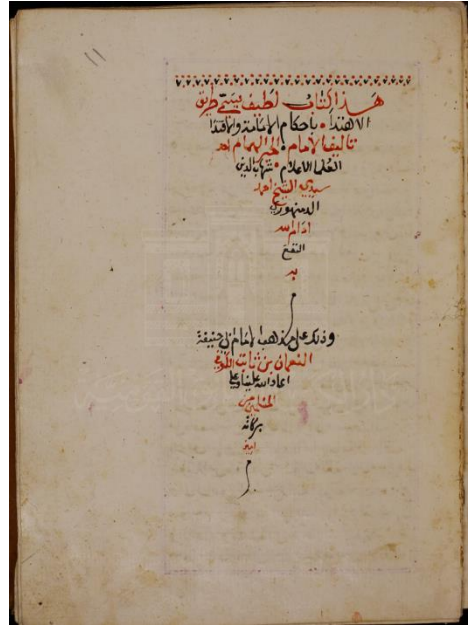 ١١
هذا كتاب لطيف يسمى طريق
الاهتدا باحكام الامامة والاقتدا
تاليف الامام الحبر الهمام احد
العلما الاعلام شهاب الدين
سيدي الشيخ احمد
الدمنهوري
ادام الله
النفع
به
م
وذلك على مذهب الامام ابي حنيفة
النعمان بن ثابت الكوفي
اعاد الله علينا وعلى
المسلمين من
بركاته
امين
م